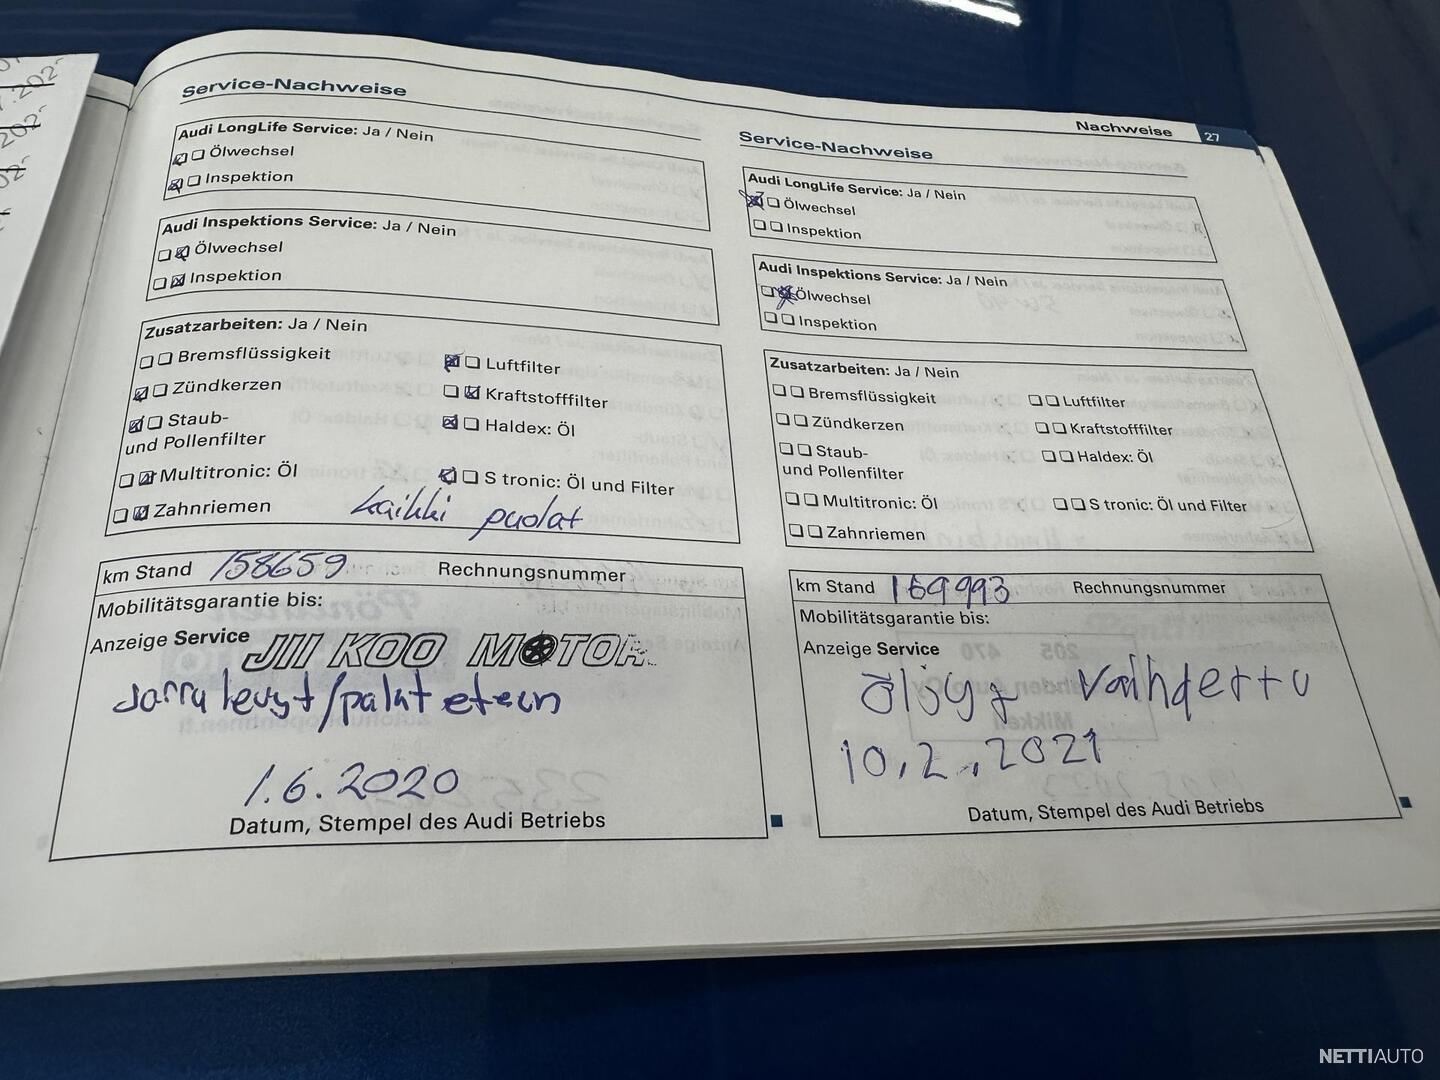 Nachweise 27
Service-Nachweise
Audi LongLife Service: Ja / Nein
Ölwechsel
Inspektion
Audi Inspektions Service: Ja / Nein
Ölwechsel
Inspektion
Zusatzarbeiten: Ja / Nein
Bremsflüssigkeit
Luftfilter
Zündkerzen
Kraftstofffilter
Staub-
und Pollenfilter
Haldex: Öl
Multitronic: Öl
S tronic: Öl und Filter
Zahnriemen
kaikki puolat
km Stand 158659 Rechnungsnummer
Mobilitätsgarantie bis:
Anzeige Service
JII KOO MOTOR
Jarru levyt/palat eteen
1.6.2020
Datum, Stempel des Audi Betriebs
Service-Nachweise
Audi LongLife Service: Ja / Nein
Ölwechsel
Inspektion
Audi Inspektions Service: Ja / Nein
Ölwechsel
Inspektion
Zusatzarbeiten: Ja / Nein
Bremsflüssigkeit
Luftfilter
Zündkerzen
Kraftstofffilter
Staub-
und Pollenfilter
Haldex: Öl
Multitronic: Öl
S tronic: Öl und Filter
Zahnriemen
km Stand 169993 Rechnungsnummer
Mobilitätsgarantie bis:
Anzeige Service
öljyt vaihdettu
10.2.2021
Datum, Stempel des Audi Betriebs
NETTIAUTO